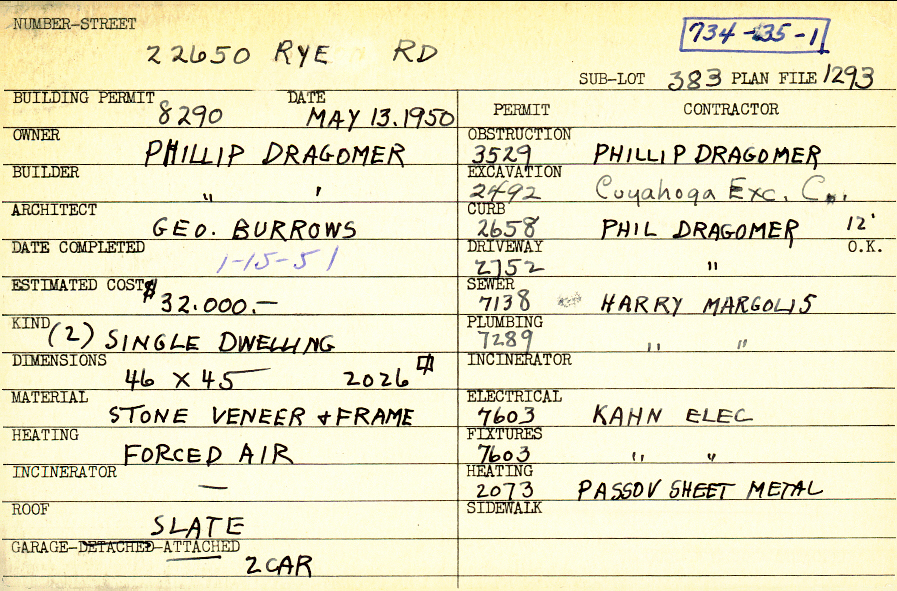 NUMBER-STREET
22650 RYE RD
734-35-1
SUB-LOT 383 PLAN FILE 1293
BUILDING PERMIT DATE
8290 MAY 13.1950
OWNER
PHILLIP DRAGOMER
BUILDER
" '
ARCHITECT
GEO. BURROWS
DATE COMPLETED
1-15-51
ESTIMATED COST
$32.000.—
KIND
(2) SINGLE DWELLING
DIMENSIONS
46 X 45 2026
MATERIAL
STONE VENEER & FRAME
HEATING
FORCED AIR
INCINERATOR
—
ROOF
SLATE
GARAGE-DETACHED-ATTACHED
2 CAR
PERMIT CONTRACTOR
OBSTRUCTION
3529 PHILLIP DRAGOMER
EXCAVATION
2492 Cuyahoga Exc.
CURB
2658 PHIL DRAGOMER 12'
DRIVEWAY O.K.
2752 "
SEWER
7138 HARRY MARGOLIS
PLUMBING
7289 " "
INCINERATOR
ELECTRICAL
7603 KAHN ELEC
FIXTURES
7603 " "
HEATING
2073 PASSOV SHEET METAL
SIDEWALK